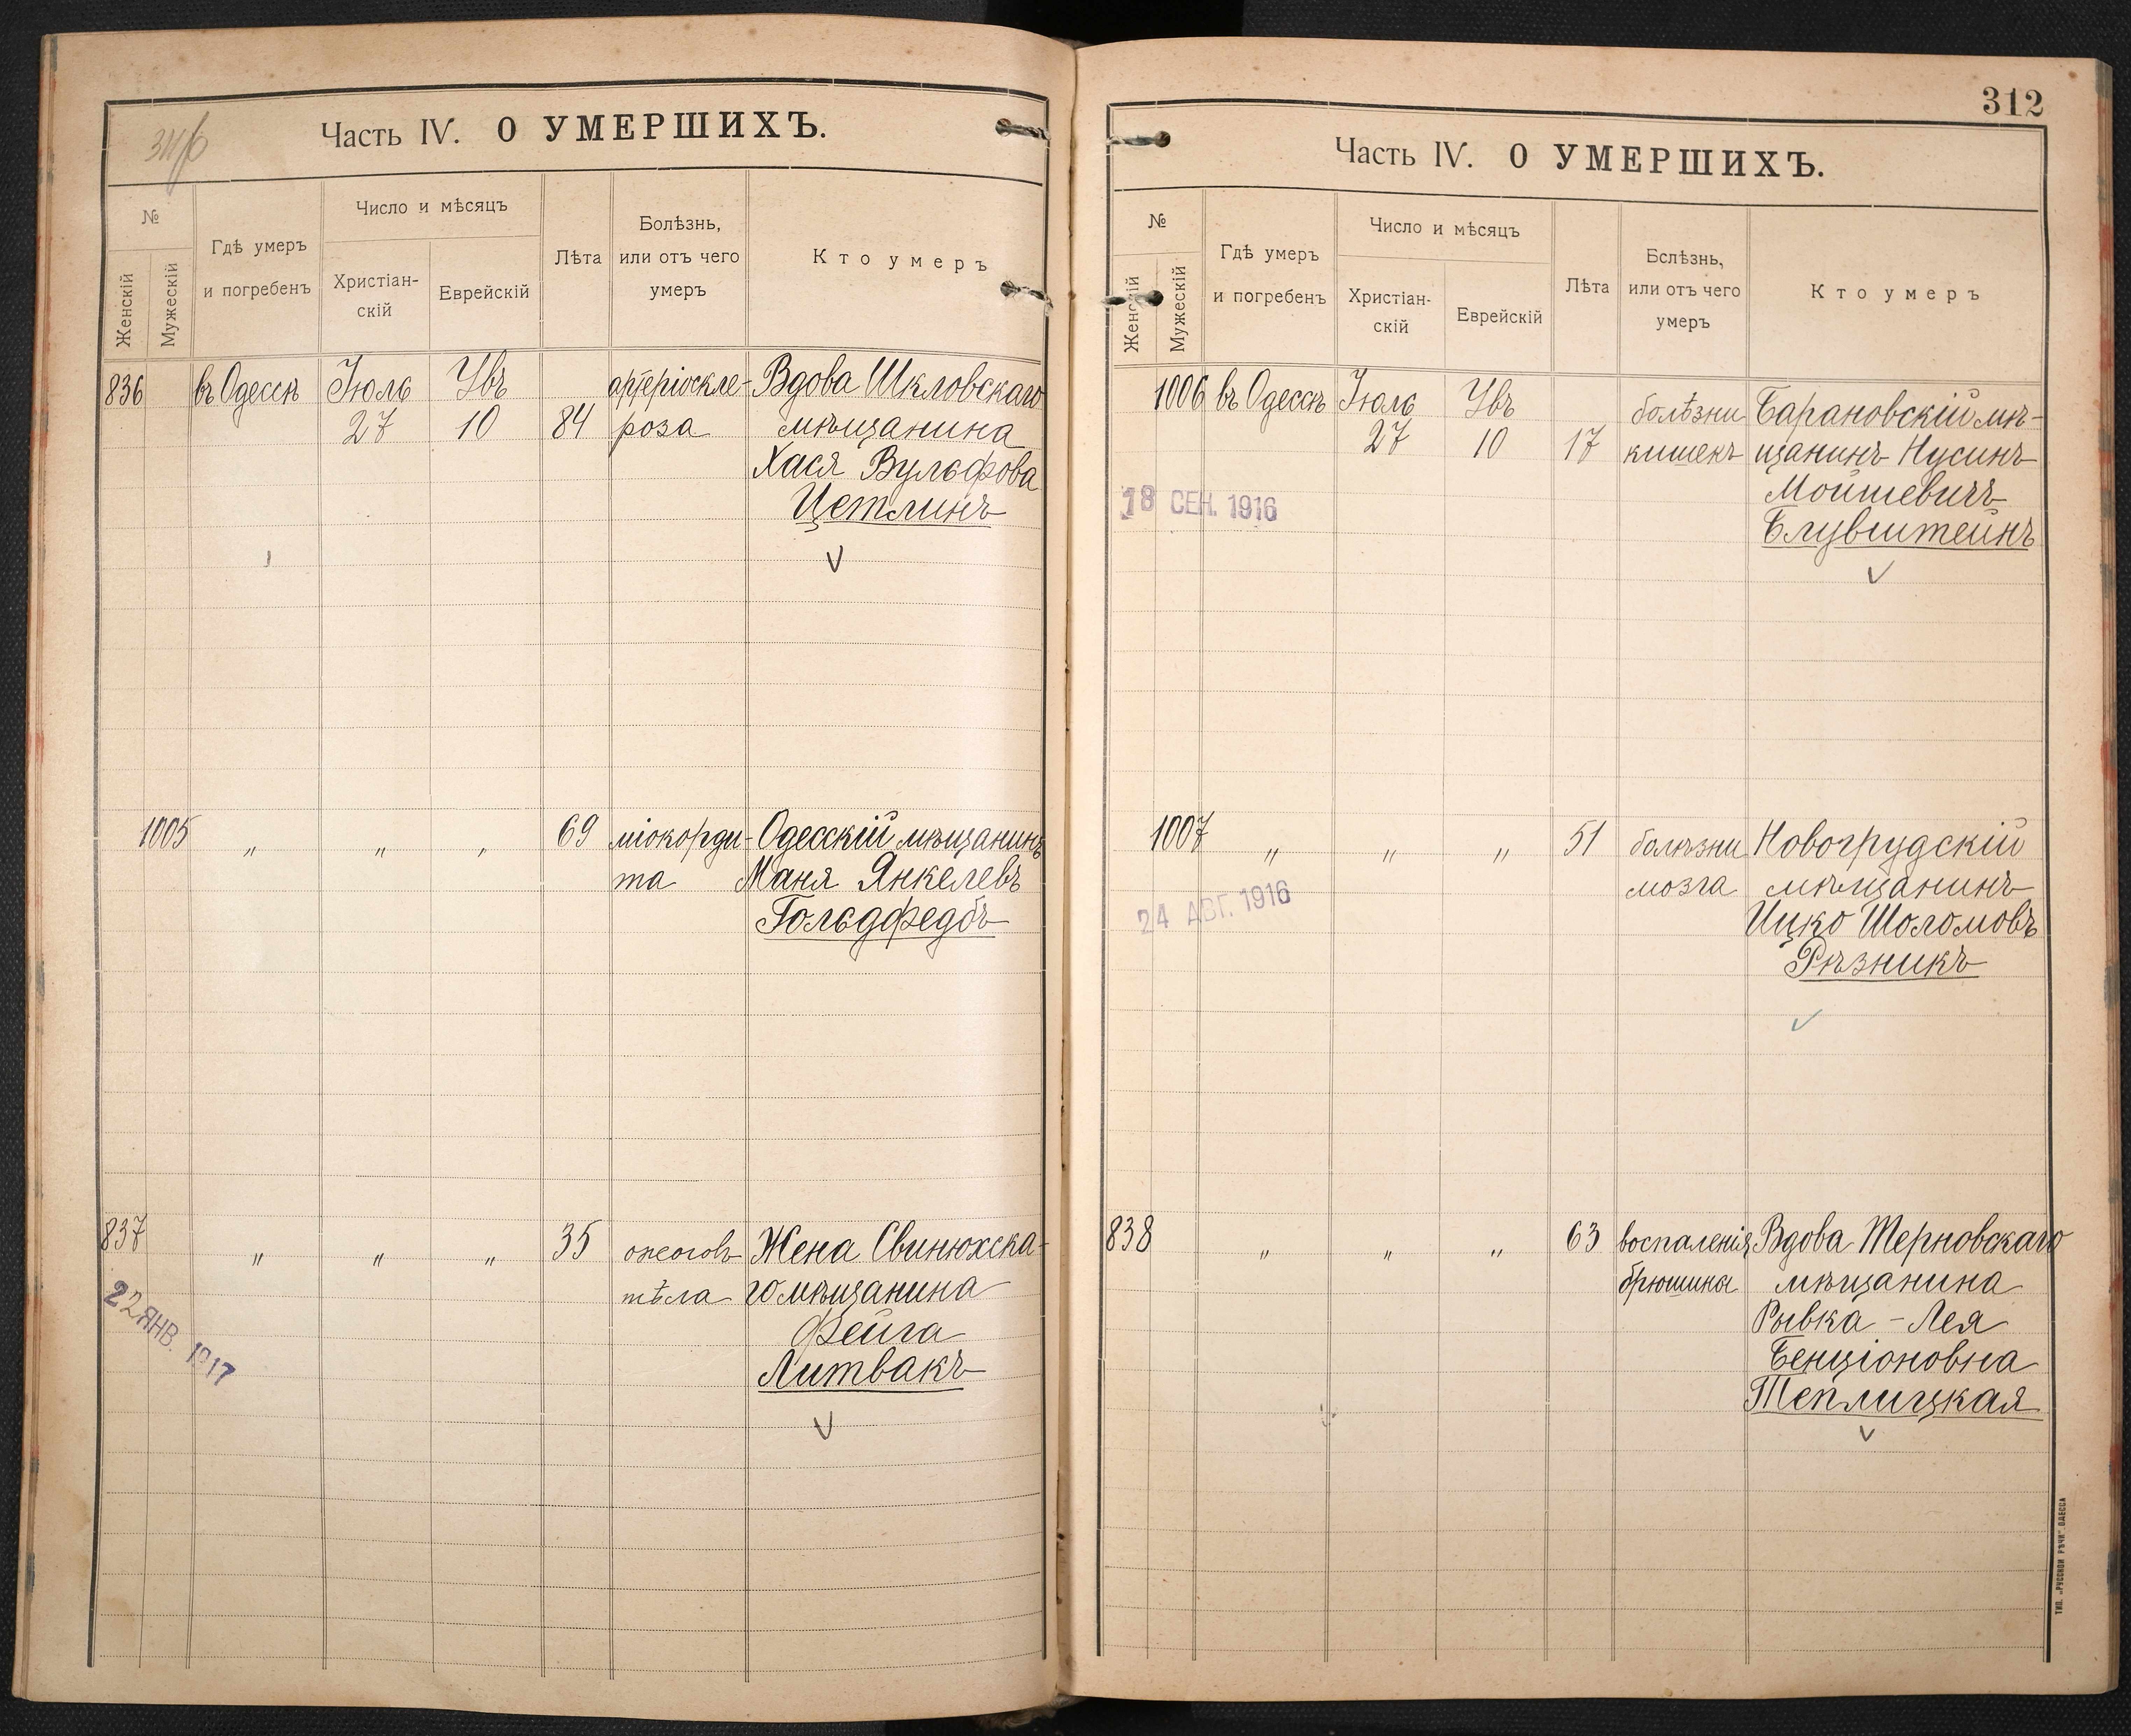 Часть IV. О УМЕРШИХЪ.
№
Женскій
Мужескій
Гдѣ умеръ
и погребенъ
Число и мѣсяцъ
Христіан-
скій
Еврейскій
Лѣта
Болѣзнь,
или отъ чего
умеръ
Кто умеръ
836 въ Одессѣ Іюль Увъ артеріоскле- Вдова Шкловскаго
27 10 84 роза мѣщанина
Хася Вульфова
Цетлинъ
1005 „ „ „ 69 міокорди- Одесскій мѣщанинъ
та Маня Янкелевъ
Гольдфедбъ
837 „ „ „ 35 ожоговъ Жена Свинюхска-
тѣла го мѣщанина
Фейга
Литвакъ
22 ЯНВ. 1917
312
Часть IV. О УМЕРШИХЪ.
№
Женскій
Мужескій
Гдѣ умеръ
и погребенъ
Число и мѣсяцъ
Христіан-
скій
Еврейскій
Лѣта
Бслѣзнь,
или отъ чего
умеръ
Кто умеръ
1006 въ Одессѣ Іюль Увъ болѣзни Барановскій мѣ-
27 10 17 кишекъ щанинъ Нусинъ
18 СЕН. 1916 Мойшевичъ
Блувштейнъ
1007 „ „ „ 51 болѣзни Новогрудскій
мозга мѣщанинъ
24 АВГ. 1916 Ицко Шоломовъ
Рѣзникъ
838 „ „ „ 63 воспаленія Вдова Терновскаго
брюшины мѣщанина
Рывка - Лея
Бенціоновна
Теплицкая
ТИП. „РУССКОЙ РѢЧИ" ОДЕССА